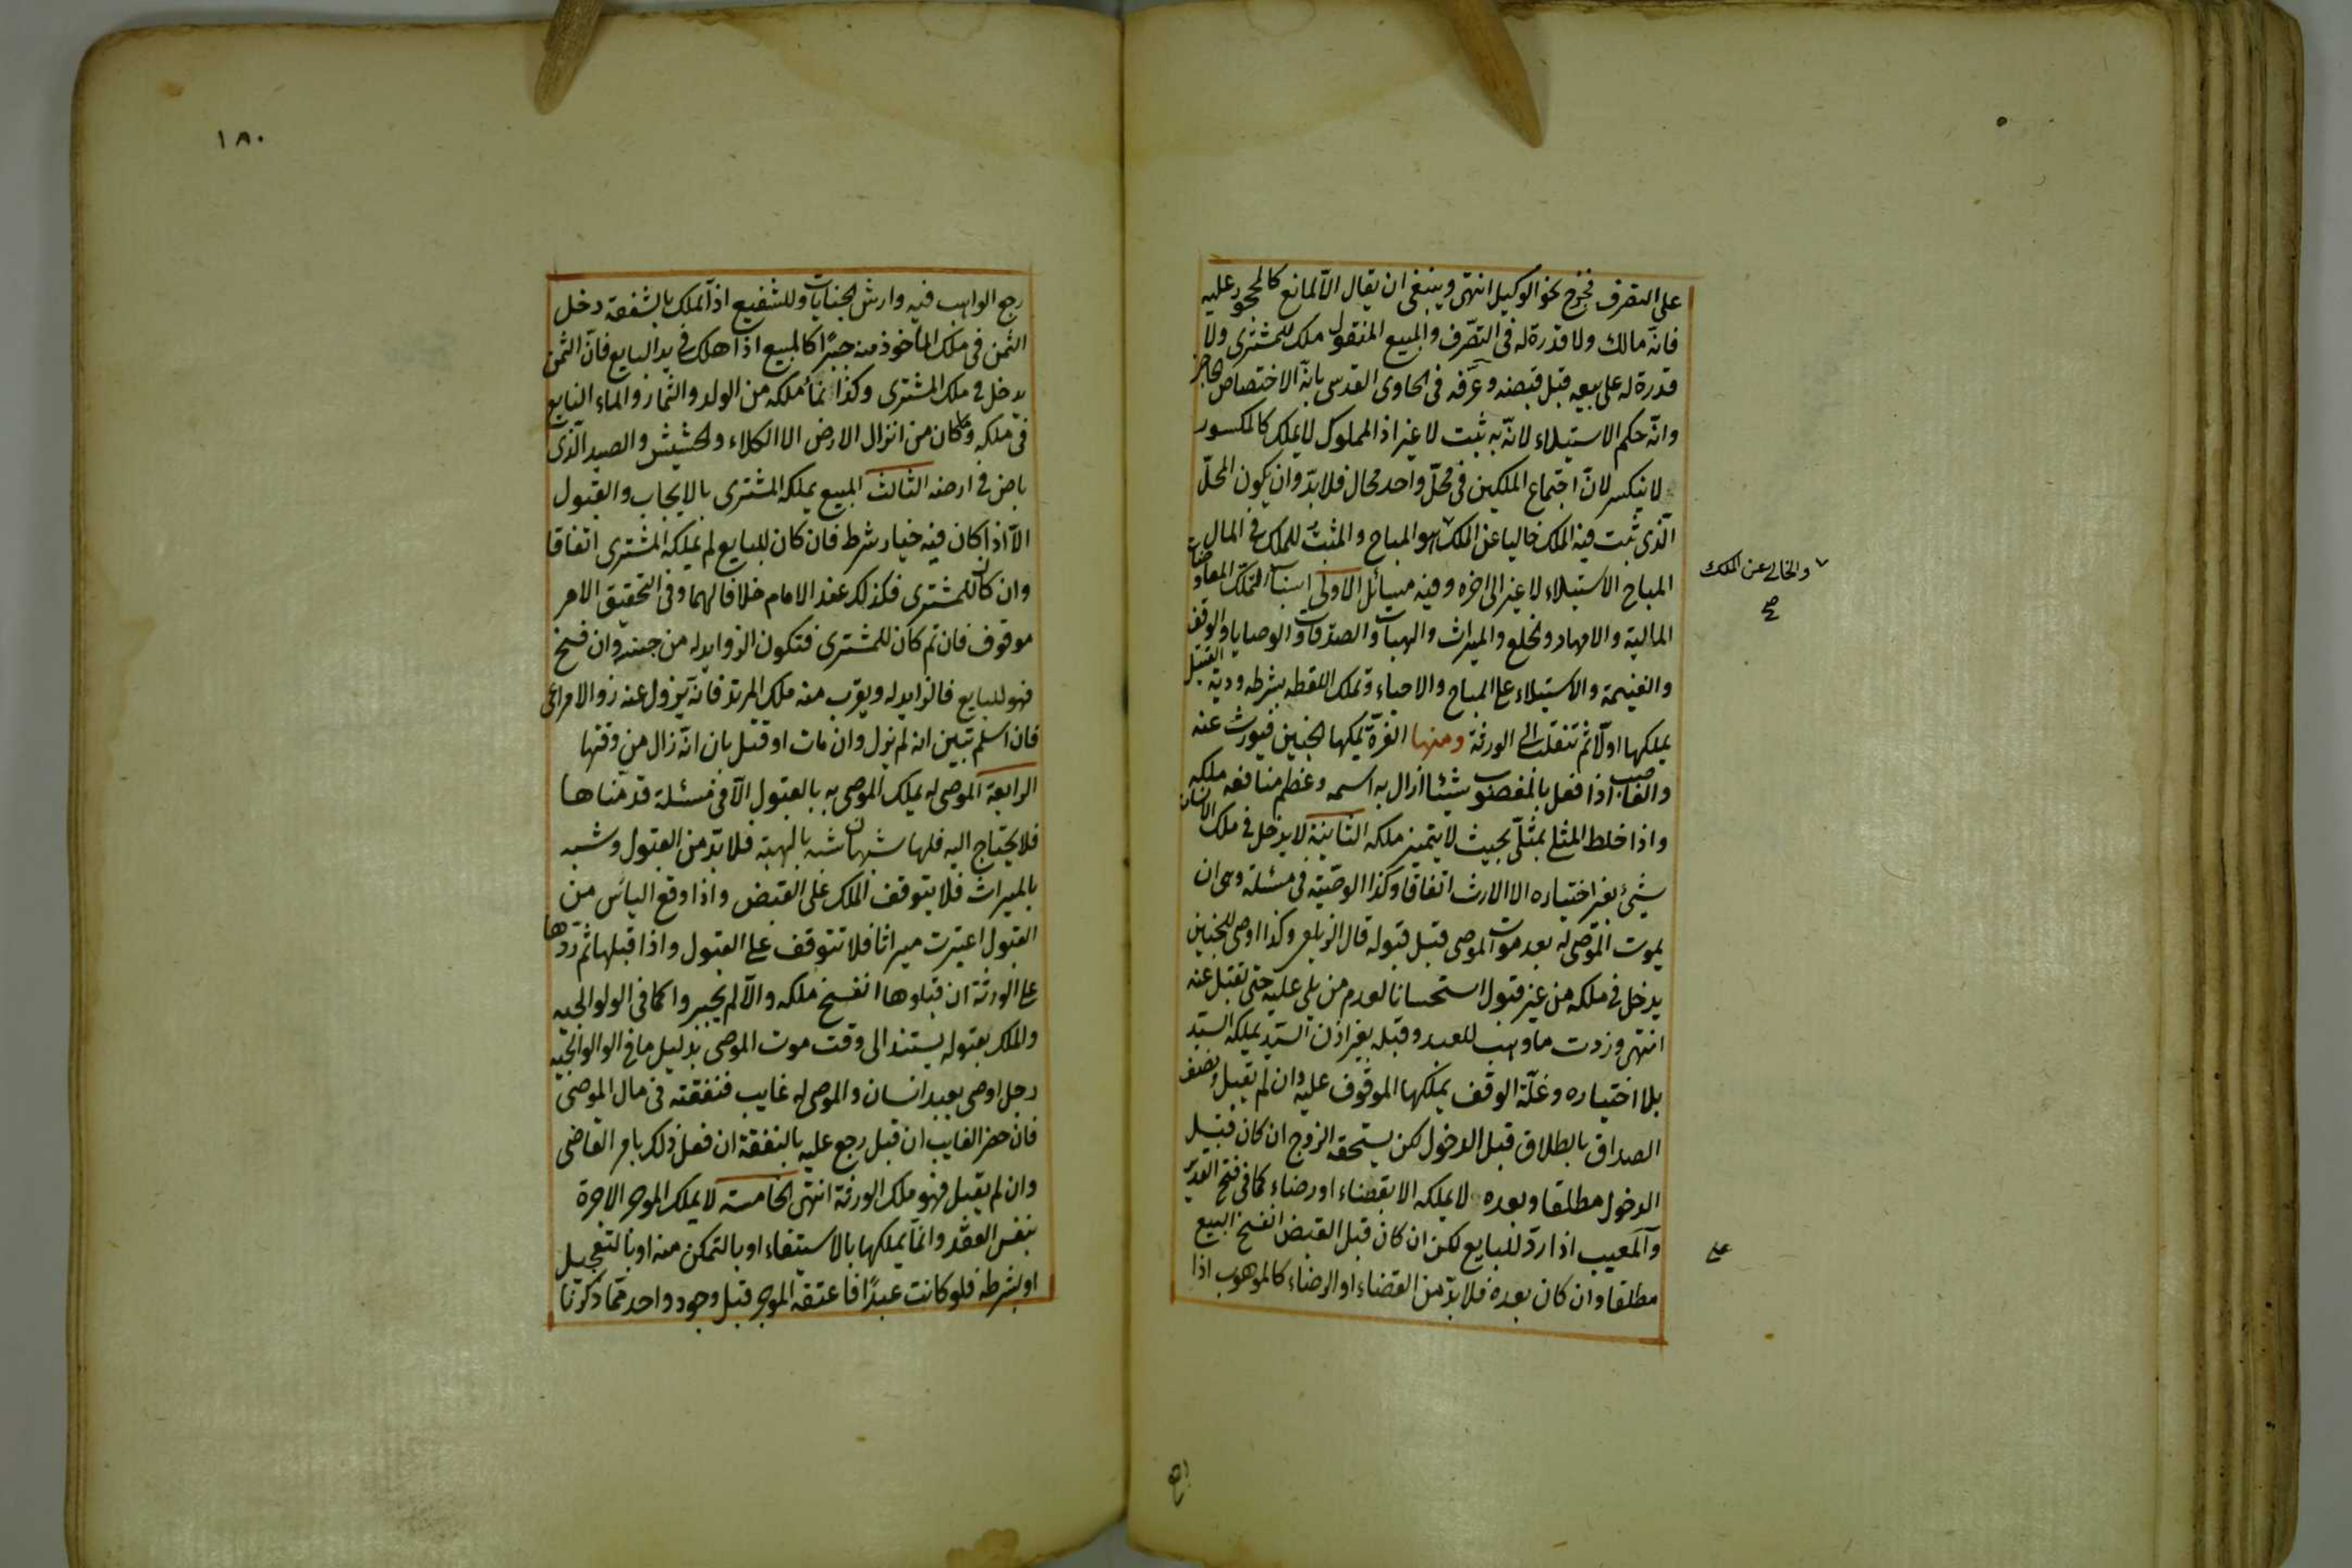 على التصرف فخرج نحو الوكيل انتهى وينبغى ان يقال الا لمانع كالمحجور عليه
فانه مالك ولا قدرة له فى التصرف والمبيع المنقول ملك للمشترى ولا
قدرة له على بيعه قبل قبضه وعرفه فى الحاوى القدسى بانه الاختصاص الحاجز
وانه حكم الاستيلاء لانه به ثبت لا غير اذ المملوك لا يملك كالمكسور
لا ينكسر لان اجتماع الملكين فى محل واحد محال فلا بد وان يكون المحل
الذى ثبت فيه الملك خاليا عن الملك هو المباح والمثبت للملك فى المال
والخالى عن الملك
صح
المباح الاستيلاء لا غير الى اخره وفيه مسائل الاولى اسباب التملك المعاوضات
المالية والامهار والخلع والميراث والهبات والصدقات والوصايا والوقف
والغنيمة والاستيلاء على المباح والاحياء وتملك اللقطه بشرطه ودية القتيل
يملكها اولا ثم تنقلت الى الورثة ومنها الغرة يملكها الجنين فيورث عنه
والغاصب اذا فعل بالمغصوب شيئا ازال به اسمه وعظم منافعه ملكه
واذا خلط المثلى بمثلى بحيث لا يتميز ملكه الثانية لا يدخل فى ملك الانسان
شيئ بغير اختياره الا الارث اتفاقا وكذا الوصية فى مسئلة وهى ان
يموت الموصى له بعد موت الموصى قبل قبوله قال الزيلعى وكذا اوصى للجنين
يدخل فى ملكه من غير قبول استحسانا لعدم من يلى عليه حتى تقبل عنه
انتهى وزدت ما وهب للعبد وقبله بغير اذن السيد يملكه السيد
بلا اختياره وغلة الوقف يملكها الموقوف عليه وان لم يقبل ونصف
الصداق بالطلاق قبل الدخول لكن يستحقه الزوج ان كان قبل
الدخول مطلقا وبعده لا يملكه الا بقضاء او رضاء كما فى فتح القدير
والمعيب اذا رد للبايع لكن ان كان قبل القبض انفسخ البيع
على
مطلقا وان كان بعده فلا بد من القضاء او الرضاء كالموهوب اذا
١٨٠
رجع الواهب فيه وارش الجنايات وللشفيع اذا تملك بالشفعة دخل
الثمن فى ملك المأخوذ منه جبرا كالمبيع اذا هلك فى يد البايع فان الثمن
يدخل فى ملك المشترى وكذا نماء ملكه من الولد والثمار والماء النابع
فى ملكه وما كان من انزال الارض الا الكلاء والحشيش والصيد الذى
باض فى ارضه الثالث المبيع يملكه المشترى بالايجاب والقبول
الا اذا كان فيه خيار شرط فان كان للبايع لم يملكه المشترى اتفاقا
وان كان للمشترى فكذلك عند الامام خلافا لهما وفى التحقيق الامر
موقوف فان تم كان للمشترى فتكون الزوايد له من حينه وان فسخ
فهو للبايع فالزايد له ويقرب منه ملك المرتد فانه يزول عنه زوالا مراعى
فان اسلم تبين انه لم يزل وان مات او قتل بان انه زال من وقتها
الرابعة الموصى له يملك الموصى به بالقبول الا فى مسئلة قدمناها
فلا يحتاج اليه فلها شبهان شبه بالهبة فلا بد من القبول وشبه
بالميراث فلا يتوقف الملك على القبض واذا وقع الياس من
القبول اعتبرت ميراثا فلا تتوقف على القبول واذا قبلها ثم ردها
على الورثة ان قبلوها انفسخ ملكه والا لم يجبروا كما فى الولوالجيه
والملك بقبوله يستند الى وقت موت الموصى بدليل ما فى الوالوالجيه
رجل اوصى بعبد انسان والموصى له غايب فنفقته فى مال الموصى
فان حضر الغايب ان قبل رجع عليه بالنفقة ان فعل ذلك بامر القاضى
وان لم يقبل فهو ملك الورثة انتهى الخامسة لا يملك الموجر الاجرة
بنفس العقد وانما يملكها بالاستيفاء او بالتمكن منه او بالتعجيل
او بشرطه فلو كانت عبدا فاعتقه الموجر قبل وجود واحد مما ذكرنا